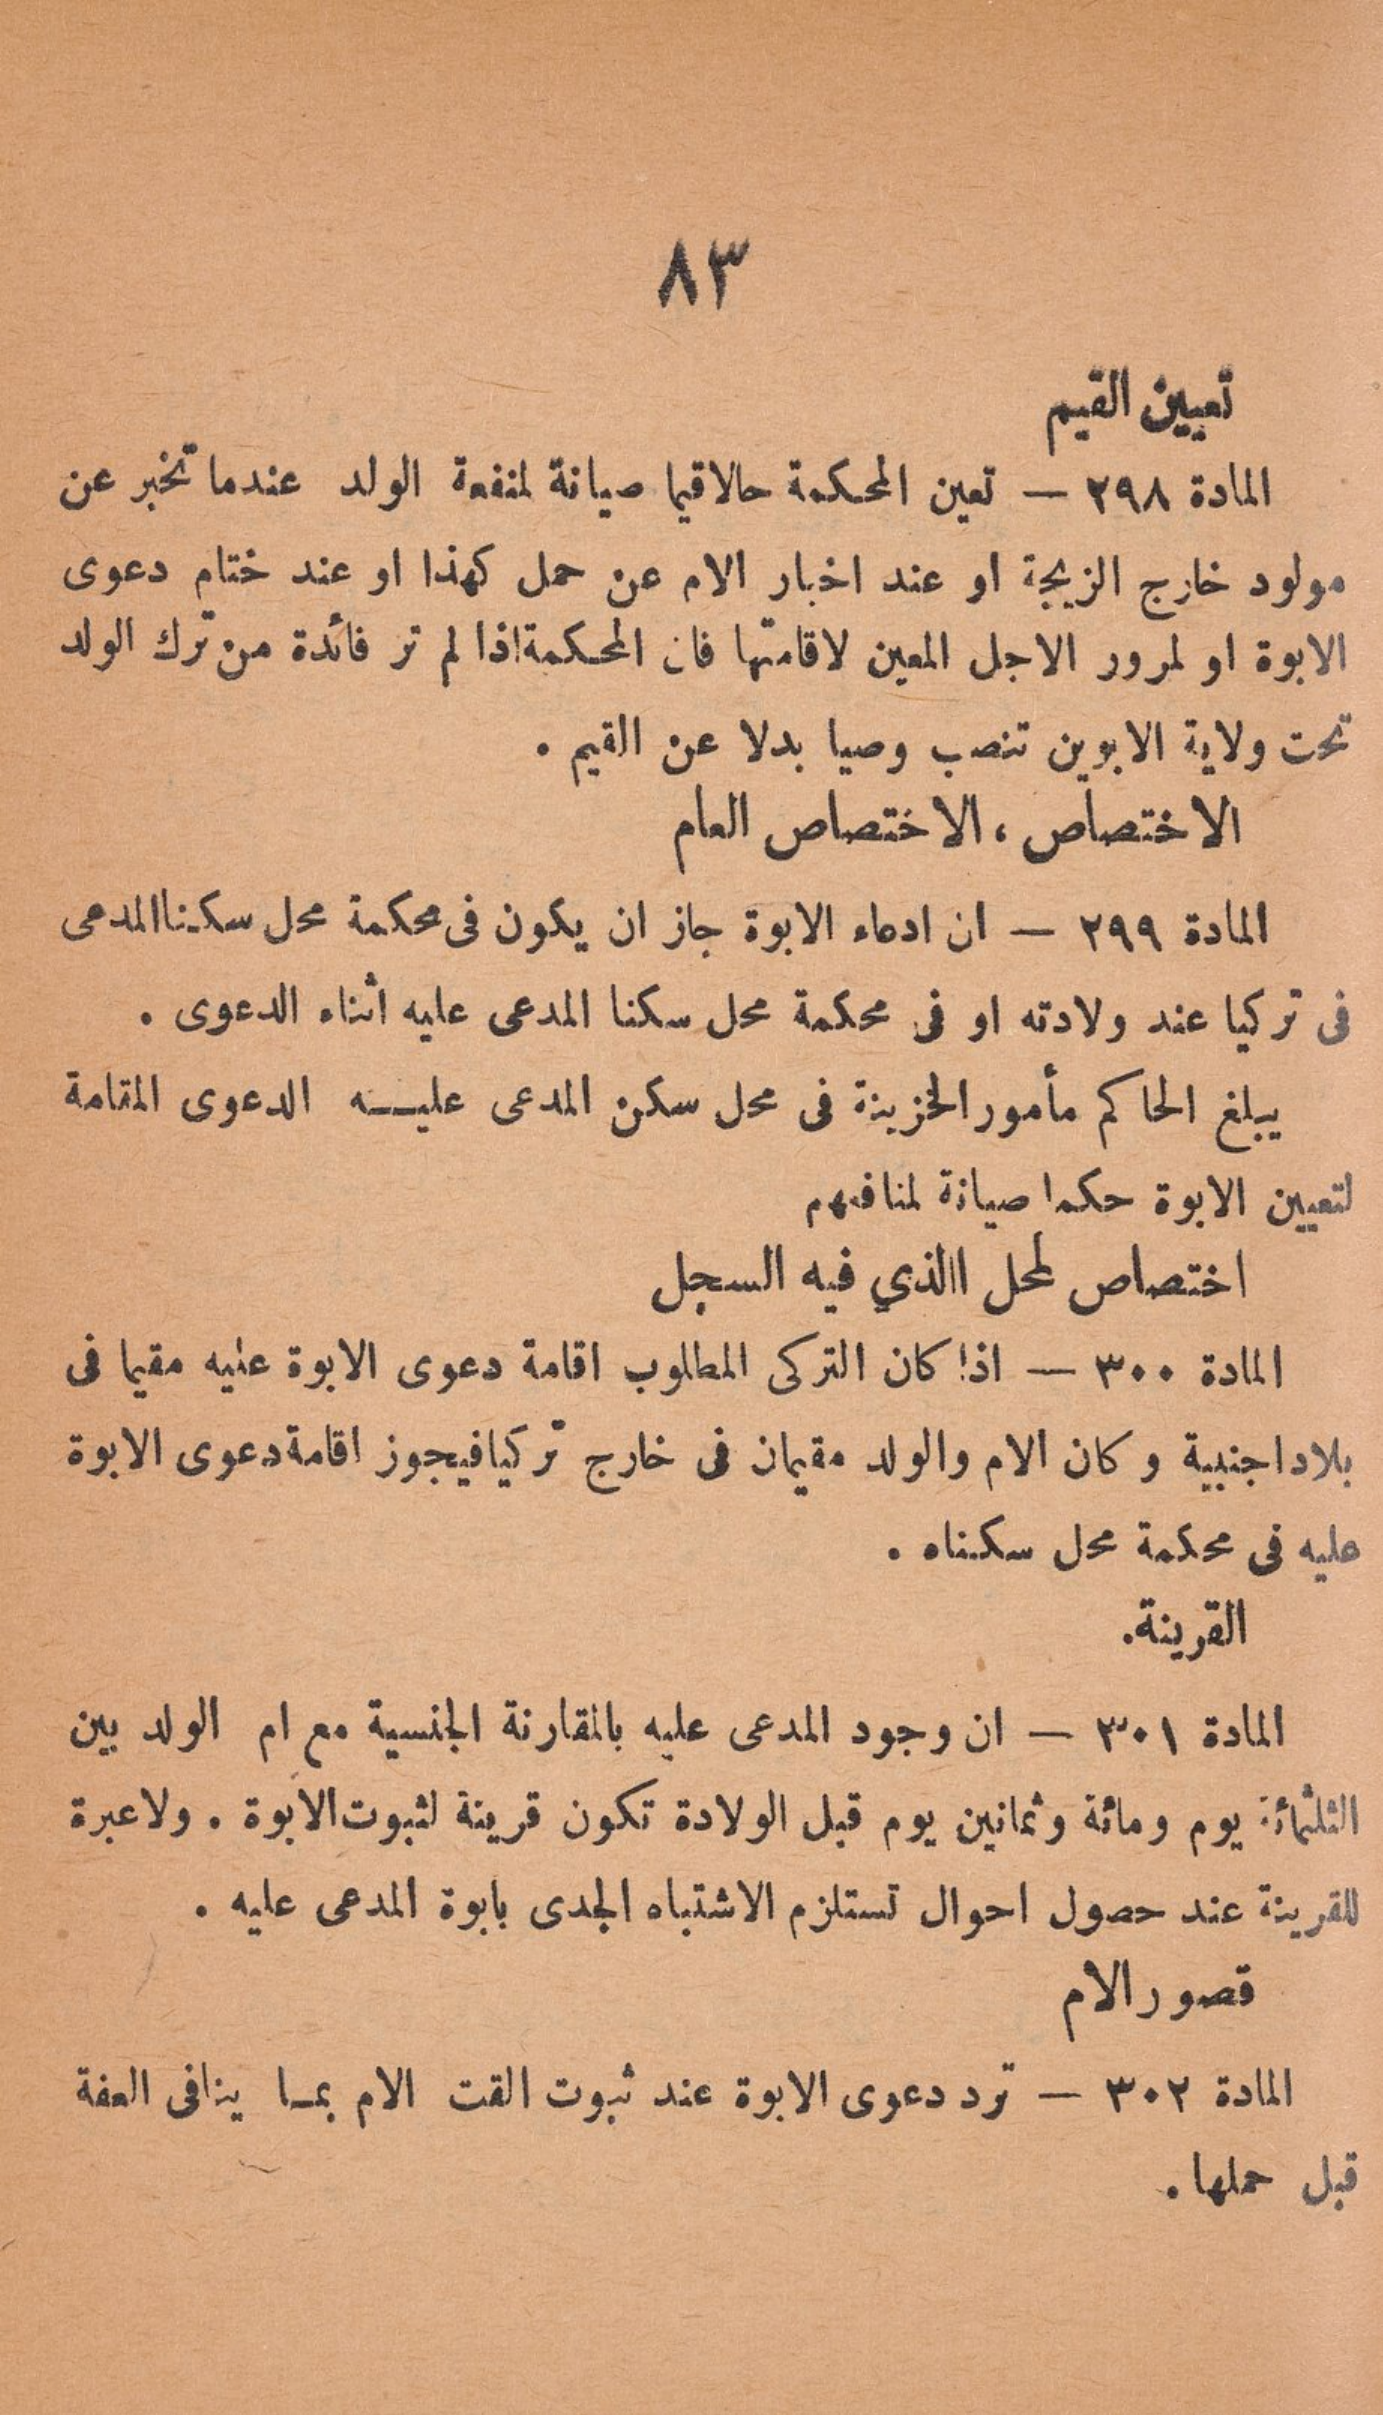 ٨٣
تعيين القيم
المادة ٢٩٨ — تعين المحكمة حالا قيما صيانة لمنفعة الولد عندما تخبر عن
مولود خارج الزيجة او عند اخبار الام عن حمل كهذا او عند ختام دعوى
الابوة او لمرور الاجل المعين لاقامتها فان المحكمة اذا لم تر فائدة من ترك الولد
تحت ولاية الابوين تنصب وصيا بدلا عن القيم .
الاختصاص ، الاختصاص العام
المادة ٢٩٩ — ان ادعاء الابوة جاز ان يكون فى محكمة محل سكنا المدعى
فى تركيا عند ولادته او فى محكمة محل سكنا المدعى عليه اثناء الدعوى .
يبلغ الحاكم مأمور الخزينة فى محل سكن المدعى عليـــه الدعوى المقامة
لتعيين الابوة حكما صيانة لمنافعهم
اختصاص لمحل االذي فيه السجل
المادة ٣٠٠ — اذا كان التركى المطلوب اقامة دعوى الابوة عليه مقيما فى
بلاد اجنبية وكان الام والولد مقيمان فى خارج تركيا فيجوز اقامة دعوى الابوة
عليه فى محكمة محل سكناه .
القرينة.
المادة ٣٠١ — ان وجود المدعى عليه بالمقارنة الجنسية مع ام الولد بين
الثلثمائة يوم ومائة وثمانين يوم قبل الولادة تكون قرينة لثبوت الابوة . ولا عبرة
للقرينة عند حصول احوال تستلزم الاشتباه الجدى بابوة المدعى عليه .
قصور الام
المادة ٣٠٢ — ترد دعوى الابوة عند ثبوت القت الام بمـا ينافى العفة
قبل حملها .